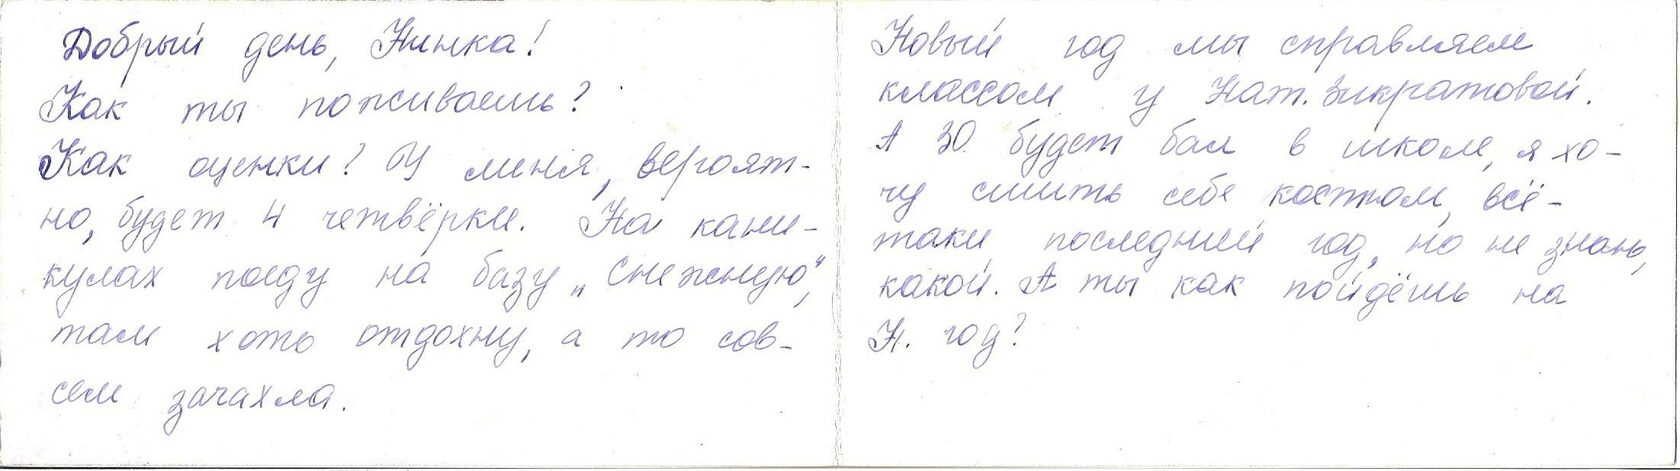 Добрый день, Нинка!
Как ты поживаешь?
Как оценки? У меня, вероят-
но, будет 4 четвёрки. На кани-
кулах поеду на базу „Снежную",
там хоть отдохну, а то сов-
сем зачахла.
Новый год мы справляем
классом у Нат. Зикратовой.
А 30 будет бал в школе, я хо-
чу сшить себе костюм, всё-
таки последний год, но не знаю,
какой. А ты как пойдёшь на
Н. год?